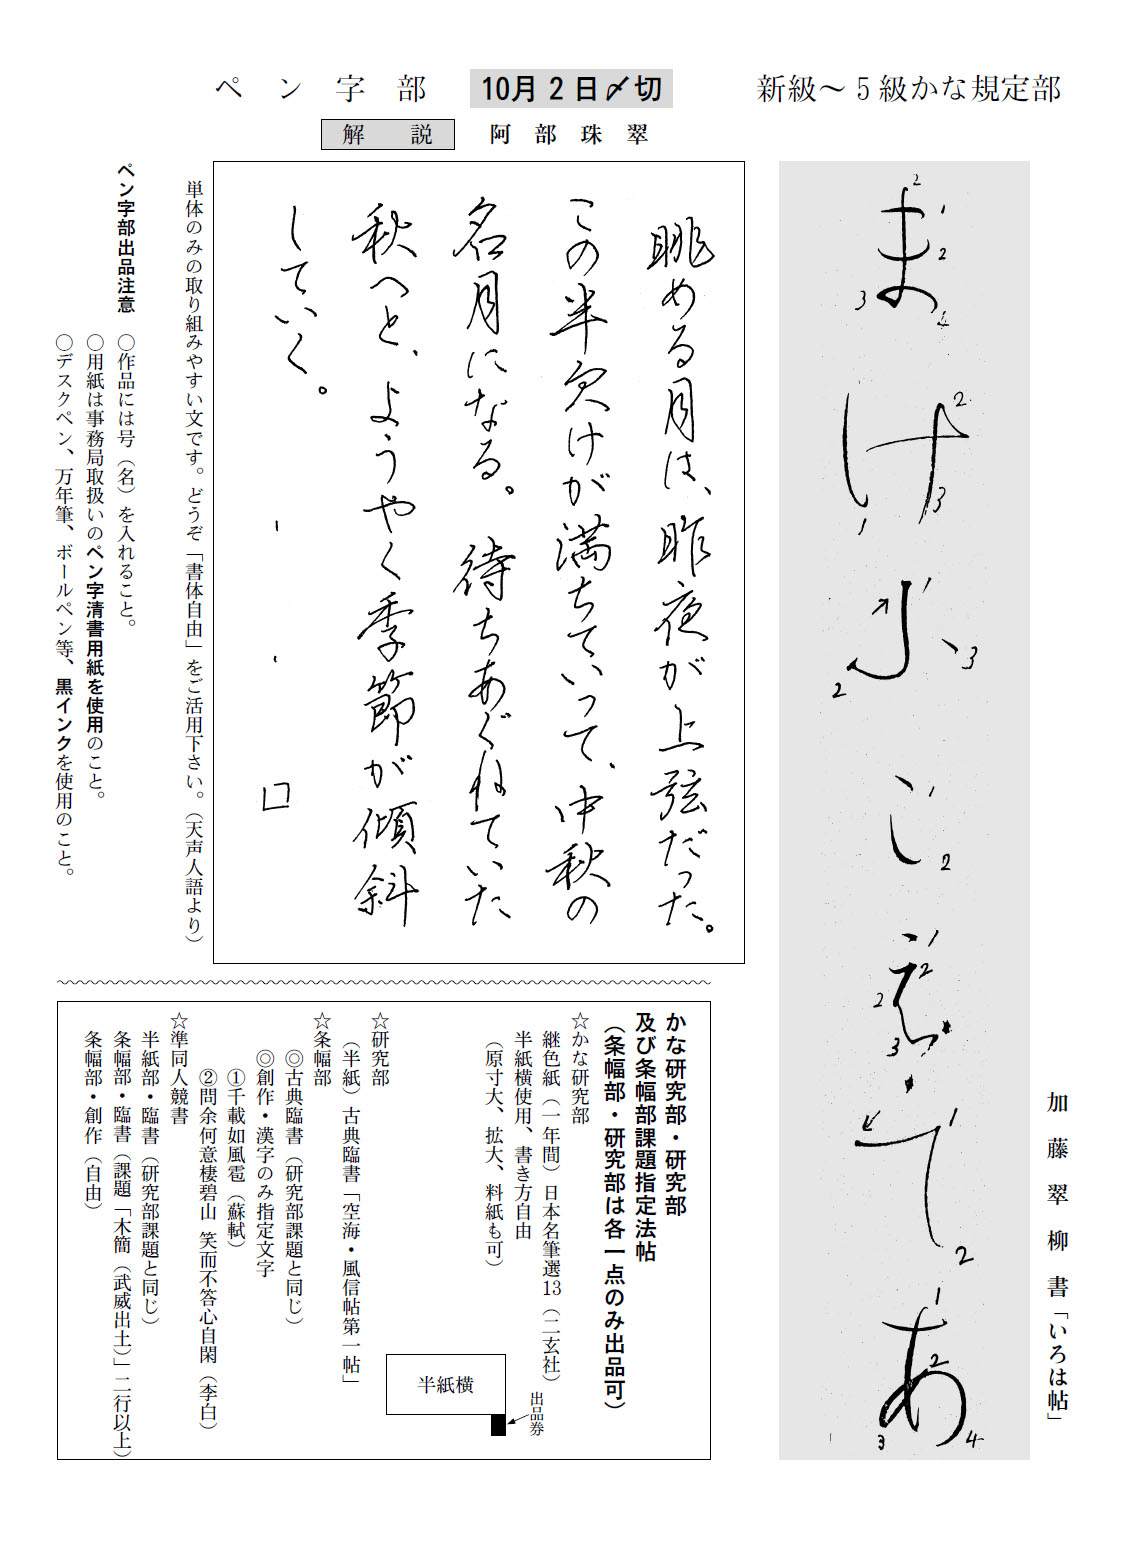 新級〜５級かな規定部
加藤翠柳書「いろは帖」
ま
け
ふ
こ
え
て
あ
ペン字部
10月２日〆切
解説
阿部珠翠
眺める月は、昨夜が上弦だった。
この半欠けが満ちていって、中秋の
名月になる。待ちあぐねていた
秋へと、ようやく季節が傾斜
していく。
単体のみの取り組みやすい文です。どうぞ「書体自由」をご活用下さい。（天声人語より）
ペン字部出品注意
○作品には号（名）を入れること。
○用紙は事務局取扱いのペン字清書用紙を使用のこと。
○デスクペン、万年筆、ボールペン等、黒インクを使用のこと。
かな研究部・研究部
及び条幅部課題指定法帖
（条幅部・研究部は各一点のみ出品可）
☆かな研究部
継色紙（一年間）日本名筆選13（二玄社）
半紙横使用、書き方自由
（原寸大、拡大、料紙も可）
半紙横
出品券
☆研究部
（半紙）古典臨書「空海・風信帖第一帖」
☆条幅部
◎古典臨書（研究部課題と同じ）
◎創作・漢字のみ指定文字
①千載如風雹（蘇軾）
②問余何意棲碧山 笑而不答心自閑（李白）
☆準同人競書
半紙部・臨書（研究部課題と同じ）
条幅部・臨書（課題「木簡（武威出土）」二行以上）
条幅部・創作（自由）